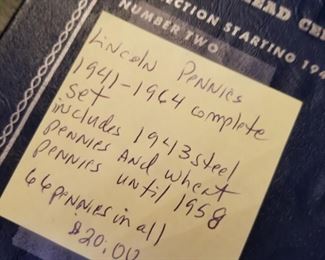 HEAD CE
ECTION STARTING 194
NUMBER TWO
Lincoln Pennies
1941-1964 complete
set
includes 1943 steel
pennies and wheat
pennies until 1958
66 pennies in all
$20.00